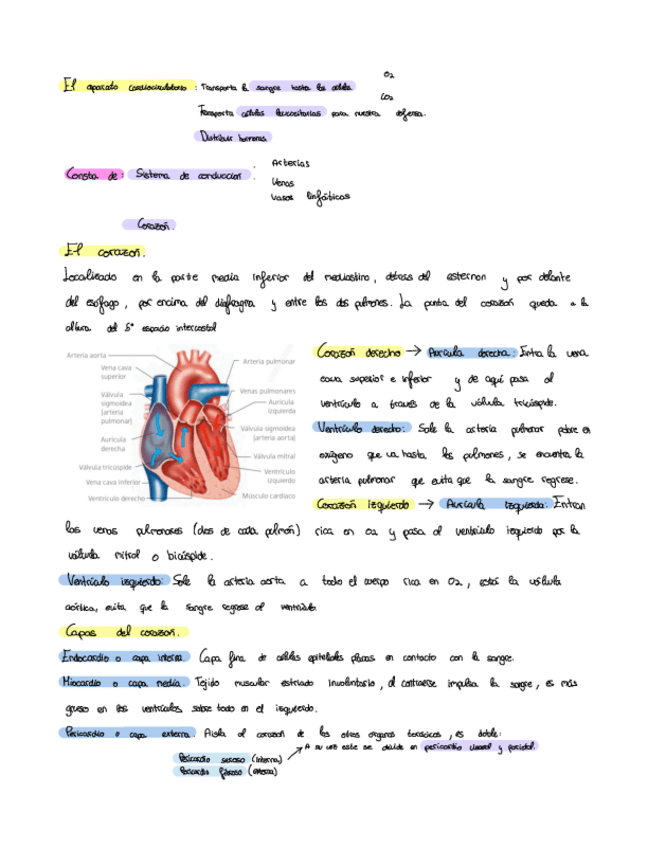 O2
El aparato cardiocirculatorio : Transporta la sangre hasta las células
CO2
Transporta células leucocitarias para nuestra defensa.
Distribuir hormonas
Arterias
Consta de : Sistema de conducción :
Venas
Vasos linfáticos
Corazón.
El corazón.
Localizado en la parte media inferior del mediastino, detrás del esternon y por delante
del esófago, por encima del diafragma y entre los dos pulmones. La punta del corazón queda a la
altura del 5º espacio intercostal
Arteria aorta
Vena cava superior
Válvula sigmoidea (arteria pulmonar)
Aurícula derecha
Válvula tricúspide
Vena cava inferior
Ventrículo derecho
Arteria pulmonar
Venas pulmonares
Aurícula izquierda
Válvula sigmoidea (arteria aorta)
Válvula mitral
Ventrículo izquierdo
Músculo cardíaco
Corazón derecho → Aurícula derecha: Entra la vena
cava superior e inferior y de aquí pasa al
ventrículo a través de la válvula tricúspide.
Ventrículo derecho: Sale la arteria pulmonar pobre en
oxígeno que va hasta los pulmones, se encuentra la
arteria pulmonar que evita que la sangre regrese.
Corazón izquierdo → Aurícula izquierda: Entran
las venas pulmonares (dos de cada pulmón) rica en O2 y pasa al ventrículo izquierdo por la
válvula mitral o bicúspide.
Ventrículo izquierdo: Sale la arteria aorta a todo el cuerpo rica en O2, está la válvula
aórtica, evita que la sangre regrese al ventrículo.
Capas del corazón.
Endocardio o capa interna. Capa fina de células epiteliales planas en contacto con la sangre.
Miocardio o capa media. Tejido muscular estriado involuntario, al contraerse impulsa la sangre, es más
grueso en los ventrículos sobre todo en el izquierdo.
Pericardio o capa externa. Aisla al corazón de los otros órganos torácicos, es doble:
A su vez este se divide en pericardio visceral y parietal.
Pericardio seroso (interna)
Pericardio fibroso (externa)